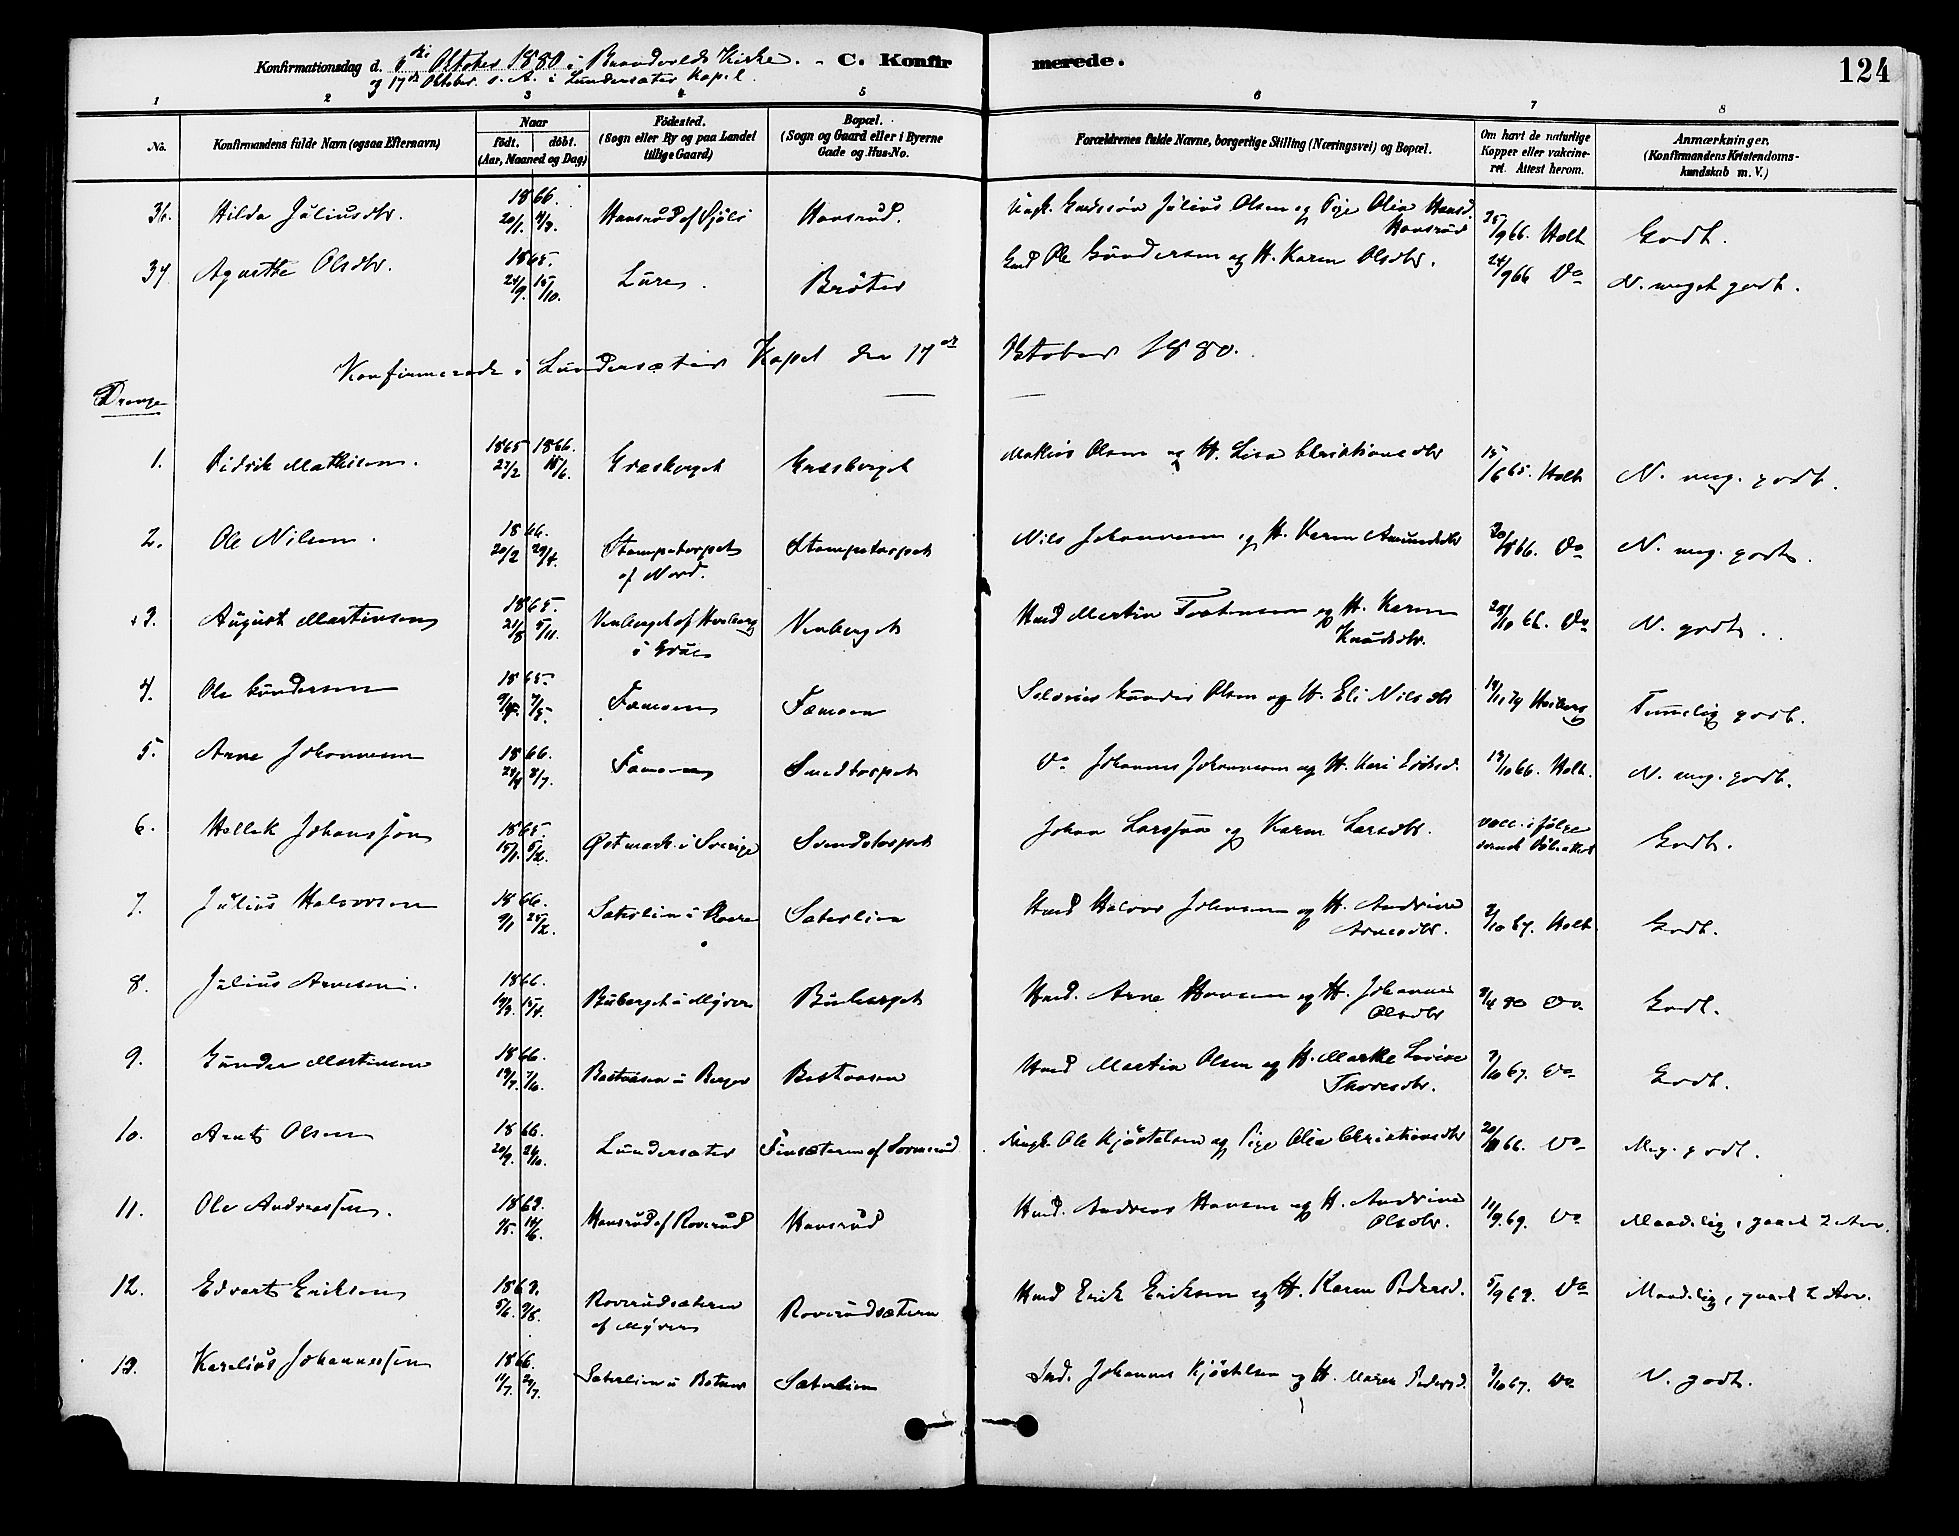 124
Konfirmationsdag d. 6te Oktober 1880 i Brandvolds Kirke. - C. Konfirmerede.
og 17de Oktober s. A. i Lundersæter Kapel.
1 2 3 4 5 6 7 8
No. Konfirmandens fulde Navn (ogsaa Efternavn) Naar födt. döbt. (Aar, Maaned og Dag) Födested. (Sogn eller By og paa Landet tillige Gaard) Bopæl. (Sogn og Gaard eller i Byerne Gade og Hus-No. Forældrenes fulde Navne, borgerlige Stilling (Næringsvei) og Bopæl. Om havt de naturlige Kopper eller vakcineret. Attest herom. Anmærkninger. (Konfirmandens Kristendomskundskab m. V.)
36. Hilda Juliusdtr. 1866. 20/1. 4/3. Hansrud af Sjøli Hansrud. Ungk. Gaardsøn Julius Olsen og Pige Olia Hansd. Hansrud 25/9 66. Holt Godt.
37 Agnethe Olsdtr. 1865. 24/9. 15/10. Lure. Bröter Gmd Ole Gundersen og H. Karen Olsdtr. 24/9 66 Do N. meget godt.
Konfirmerede i Lundersæter Kapel den 17de Oktober 1880.
Drenge
1. Didrik Mathisen. 1865 27/2 1866. 18/6. Græsberget Græsberget Mathias Olsen og H. Lisa Christiansdtr 15/6 65. Holt N. meg. godt.
2. Ole Nilsen. 1866. 20/2 29/4. Stampetorpet af Nord. Stampetorpet Nils Johannesen og H. Karen Amundsdtr 66. Do N. meg. godt.
3. August Martinsen 1865. 21/8 5/11. Venberget af Hvæberg i Grue Venberget Hmd Martin Torstensen og H. Karen Knudsdtr. 29/10 66. Do N. godt.
4. Ole Gundersen 1865 7/5. Fæmoen Fæmoen Selveier Gunder Olsen og H. Eli Nilsdtr 14/11 79 Heiberg Temmelig godt.
5. Arne Johannesen 1866. 24/4 8/7. Fæmoen Smedtorpet Do Johannes Johannesen og H. Kari Larsd. 13/10 66. Holt. N. meg. godt.
6. Hellek Johansson 1865. 15/1. 5/2. Østmark i Sverige Svendstorpet Johan Larsson og Karen Larsdtr. vacc. ifølge svensk Døbeattest Godt.
7. Julius Halvorsen 1866. 9/1 25/2. Sæterlien u Roere Sæterlien Hmd Halvor Johnsen og H. Andrine Arnesdtr. 2/10 67. Holt Godt.
8. Julius Arnesen. 1866. 14/3. 15/4. Buberget u Myren Buberget Hmd. Arne Hansen og H. Johanne Olsdtr 3/4 80 Do Godt.
9. Gunder Martinsen 1866. Bastaasen u Berger Bastaasen Hmd Martin Olsen og H. Marthe Lovise Thoresdtr. 3/10 67. Do Godt.
10. Arnt Olsen 1866. 20/9. 26/10. Lundersæter Finsæteren af Sormerud Ungk. Ole Kjöstelsen og Pige Olia Christiansdtr 66. Do Meg. godt.
11. Ole Andreassen. 1863. 14/6. Hansrud af Roverud Hansrud Hmd. Andreas Hansen og H. Andrine Olsdtr. 11/9. 69. Do Maadelig, gaaet 2 Aar.
12. Edvart Eriksen 1863. 5/6. 9/8. Roverudsæteren af Myren Roverudsæteren Hmd Erik Eriksen og H. Karen Pedersd. 5/9 63. Do Maadelig, gaaet 2 Aar.
13. Karelius Johannessen 1866. 11/7. 29/7. Sæterlien u Botner Sæterlien Ind. Johannes Kjöstelsen og H. Maren Pedersd. 3/10 67. Do N. godt.